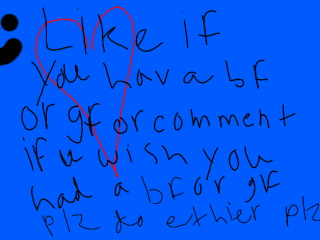 Like if
you have a bf
or gf or comment
if u wish you
had a bf or gf
plz do ethier plz